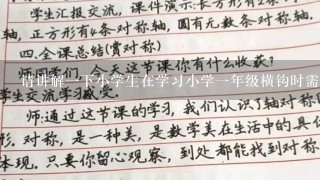 学生汇报交流，课件演示：长方形有2条对称
轴，正方形有4条对称轴，圆有无数条对称轴.
四.全课总结(赏对称)
请讲解一下小学生在学习小学一年级横钩时需
今天这节课你有什么收获?
交流学习感受.
师:通过这节课的学习，我们认识了轴对称
形.对称，是一种美，是数学美在生活中的具
体现.只要你留心观察，到处都能找到对称